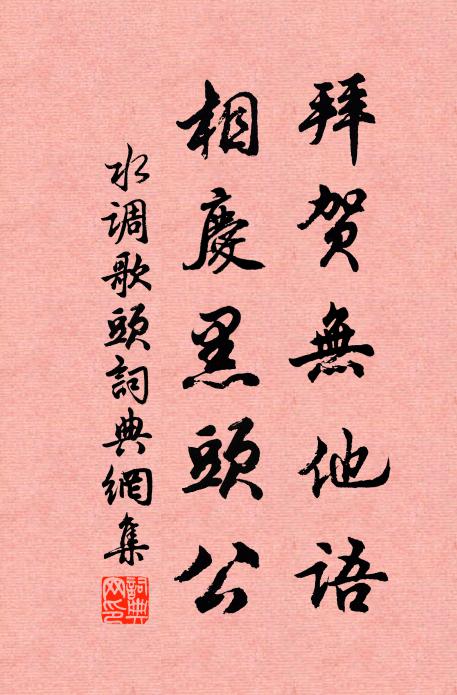 拜賀無他語
相慶黑頭公
水调歌頭詞典網集
詞典網印